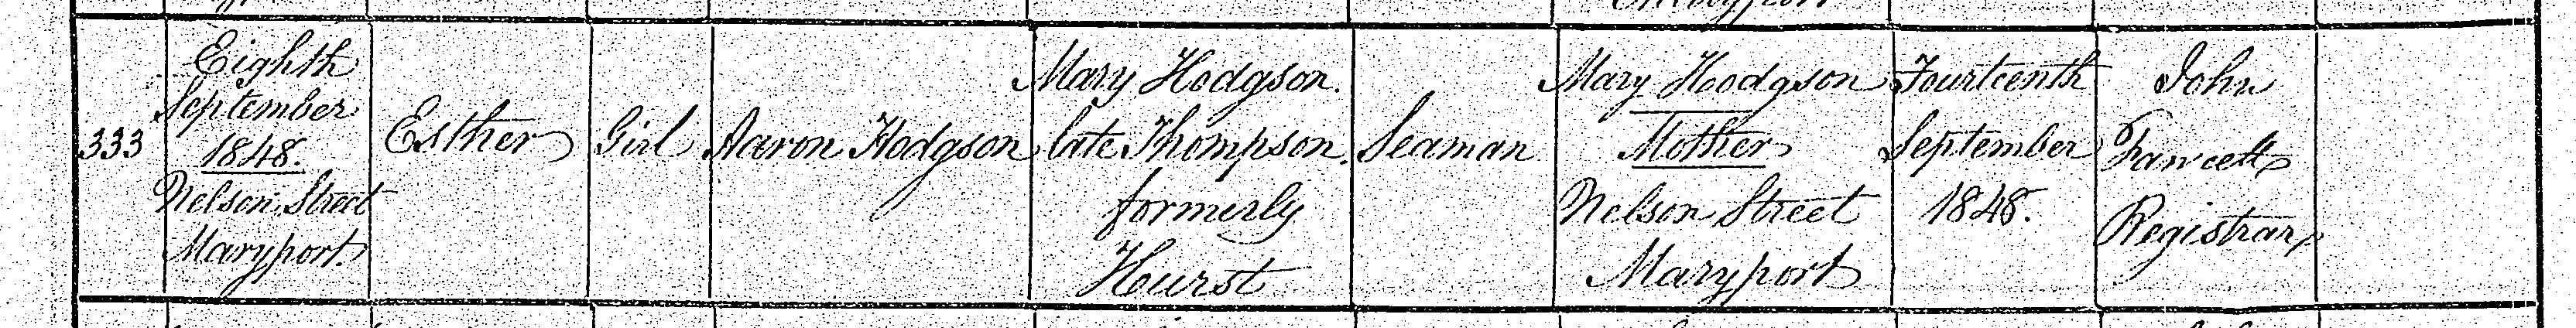 333
Eighth
September
1848.
Nelson Street
Maryport.
Esther
Girl
Aaron Hodgson
Mary Hodgson.
late Thompson.
formerly
Hurst
Seaman
Mary Hodgson
Mother
Nelson Street
Maryport
Fourteenth
September
1848.
John
Fawcett
Registrar